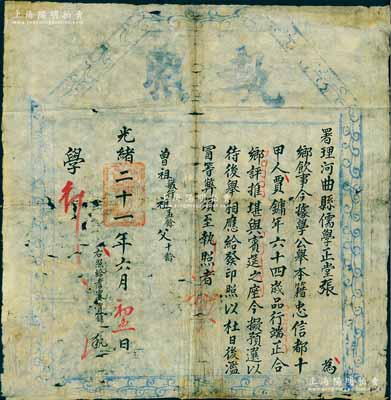 上海陽明拍賣
執照
署理河曲縣儒學正堂張 為
鄉飲事今據學公舉本籍忠信都十
甲人賈鏞年六十四歲品行端正合
鄉評推堪與賓筵之座今擬預選以
待後舉相應給發印照以杜日後濫
冒等弊須至執照者
曾祖 祖 父
光緒二十一年六月初 日
學
右照給 賓賈 執
上海阳明拍卖有限公司